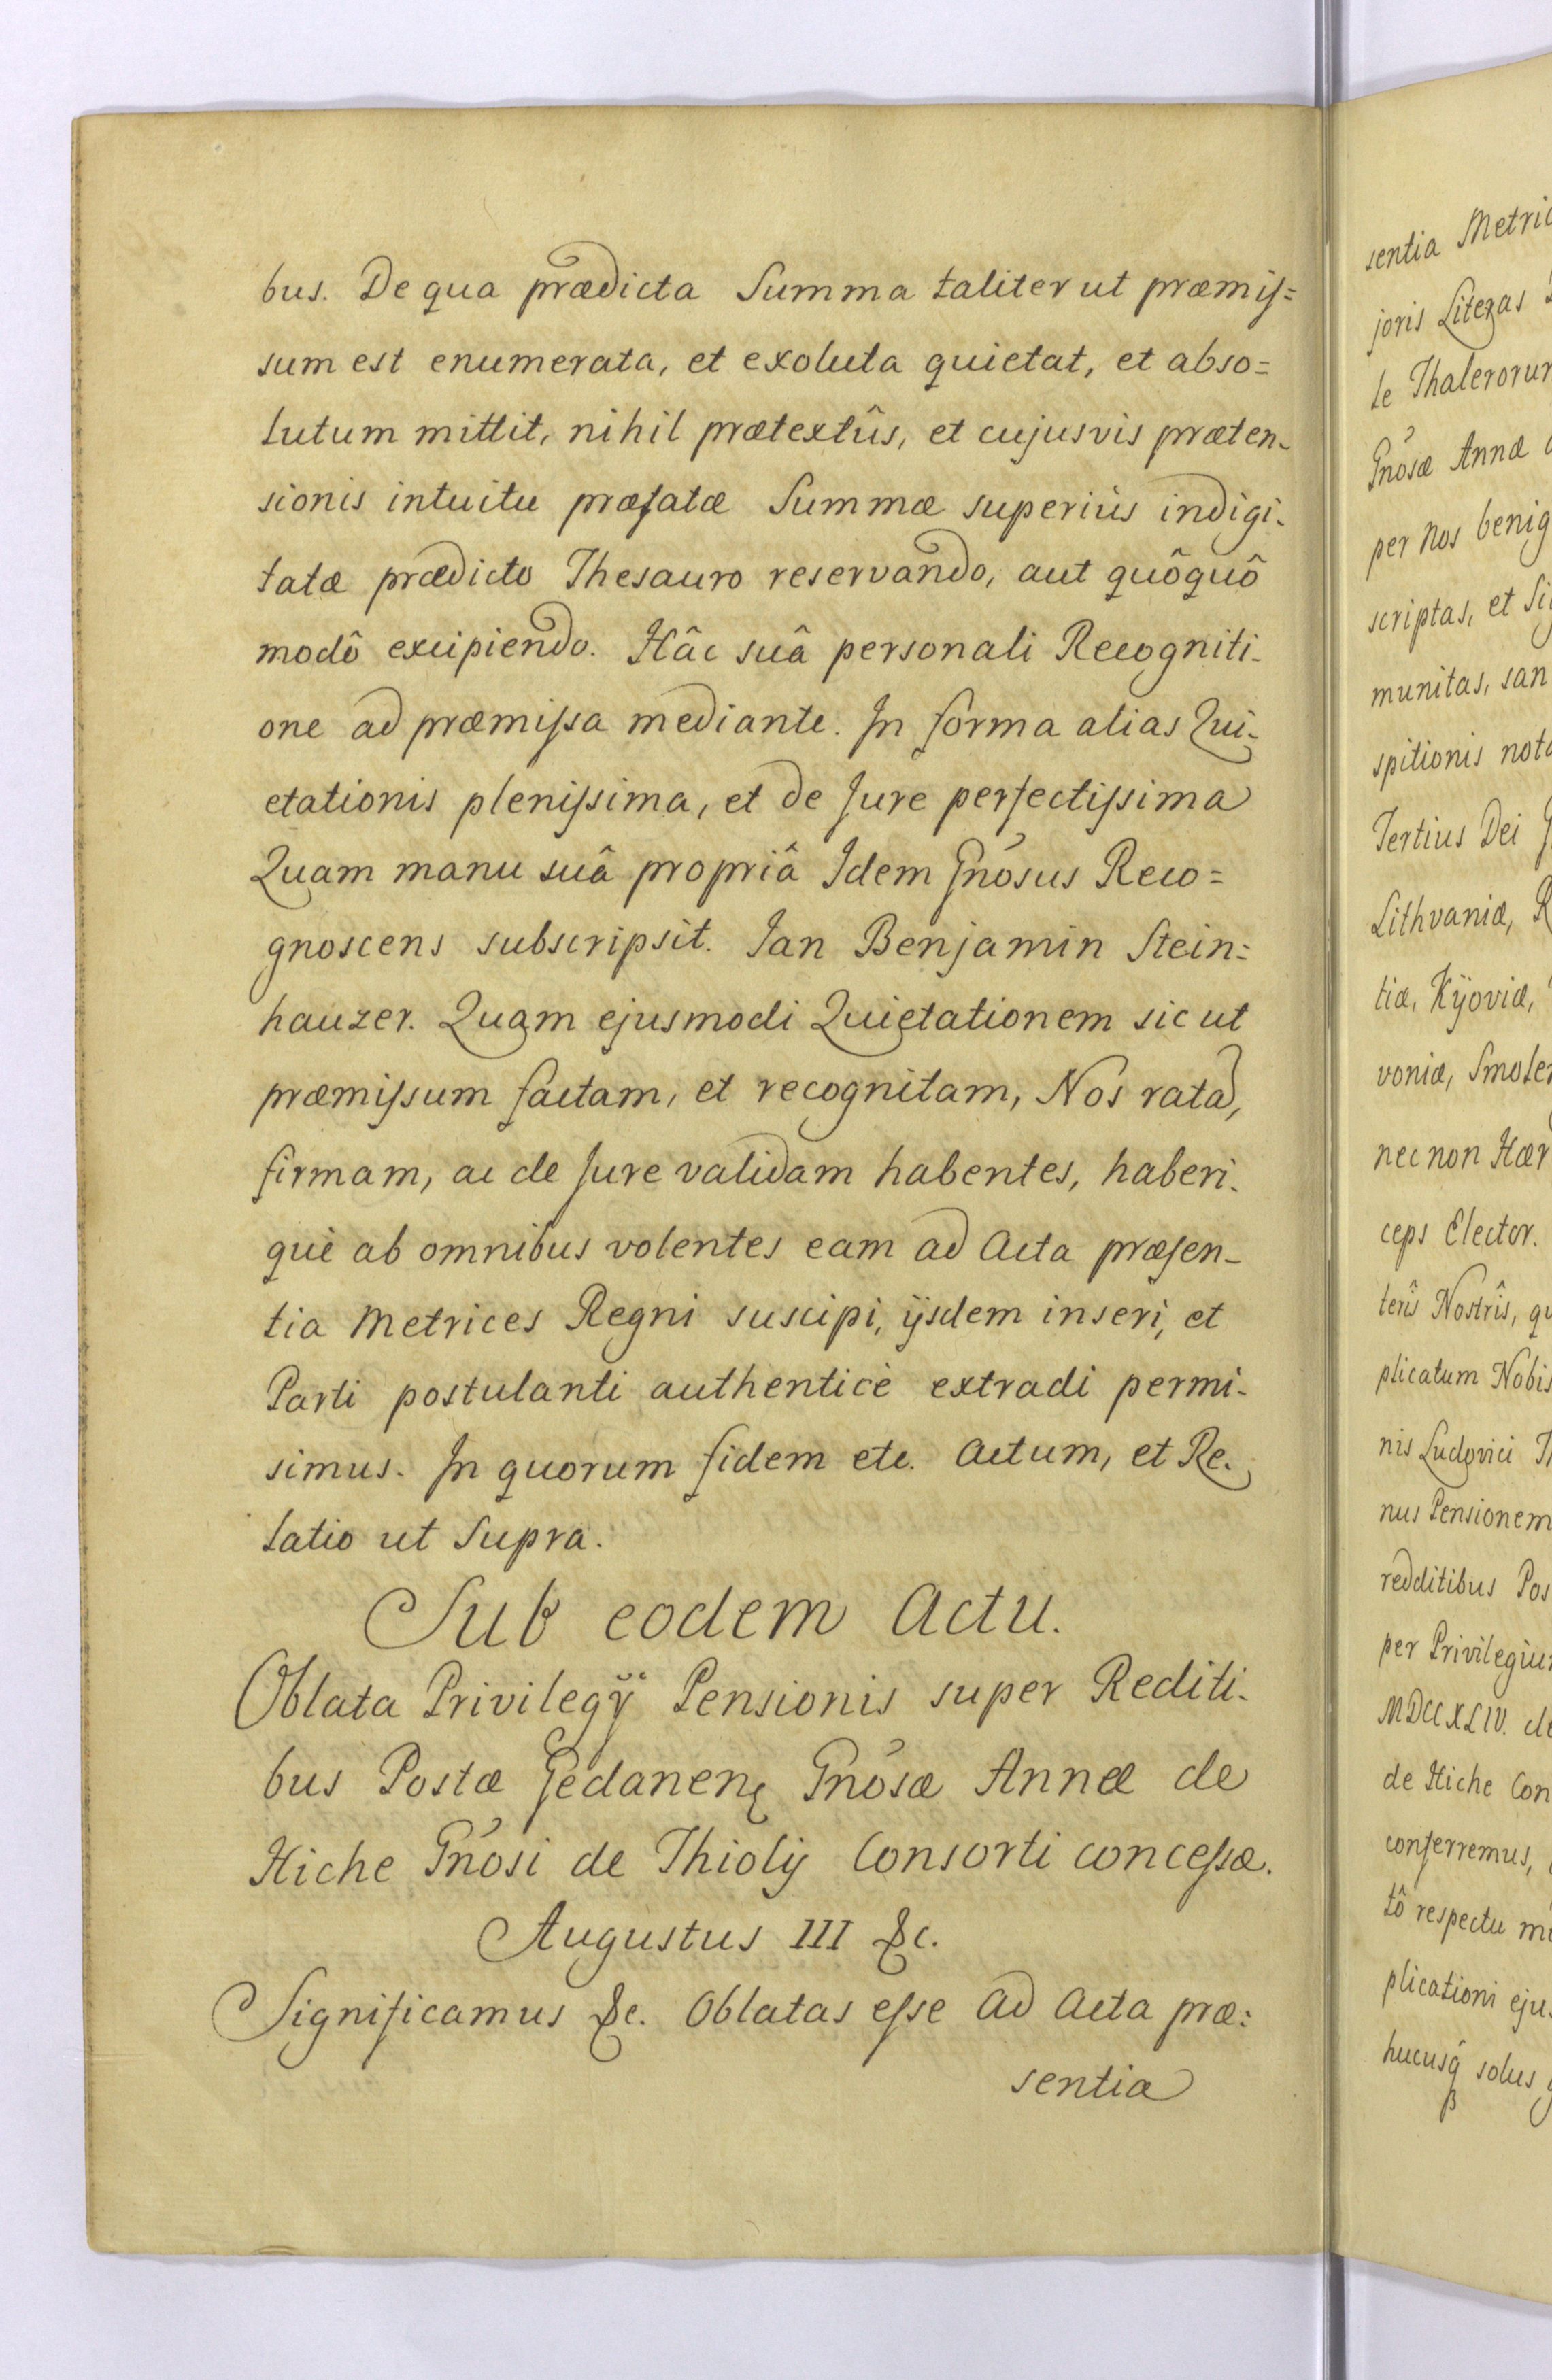 bus. De qua prædicta Summa taliter ut præmis=
sum est enumerata, et exoluta quietat, et abso=
lutum mittit, nihil prætextûs, et cujusvis præten-
sionis intuitu præfatæ Summæ superiùs indigi-
tatæ prædicto Thesauro reservando, aut quôquô
modô excipiendo. Hâc suâ personali Recogniti-
one ad præmissa mediante. In forma alias Qui-
etationis plenissima, et de Jure perfectissima
Quam manu suâ propriâ Idem Gnosus Reco=
gnoscens subscripsit. Jan Benjamin Stein=
hauzer. Quam ejusmodi Quietationem sic ut
præmissum factam, et recognitam, Nos ratã,
firmam, ac de Jure validam habentes, haberi-
què ab omnibus volentes eam ad Acta præsen-
tia Metrices Regni suscipi, ijsdem inseri, et
Parti postulanti authenticè extradi permi-
simus. In quorum fidem etc. Actum, et Re-
latio ut Supra.
Sub eodem Actu.
Oblata Privilegÿ Pensionis super Rediti-
bus Postæ Gedanenę Gnosæ Annæ de
Hiche Gnosi de Thioly Consorti concessæ.
Augustus III &c.
Significamus &c. Oblatas esse ad Acta præ=
sentia
sentia
joris Literas
le
Gnosæ Annæ
per Nos
scriptas, et
munitas,
spitionis
Tertius Dei
Lithvaniæ,
tiæ, Kÿoviæ,
voniæ,
nec non
ceps Elector.
terîs Nostrîs,
plicatum
nis Ludovici
nus Pensionem
redditibus
per
MDCCXLIV.
de Hiche
conferremus,
tô respectu
plicationi
hucusq́ solus